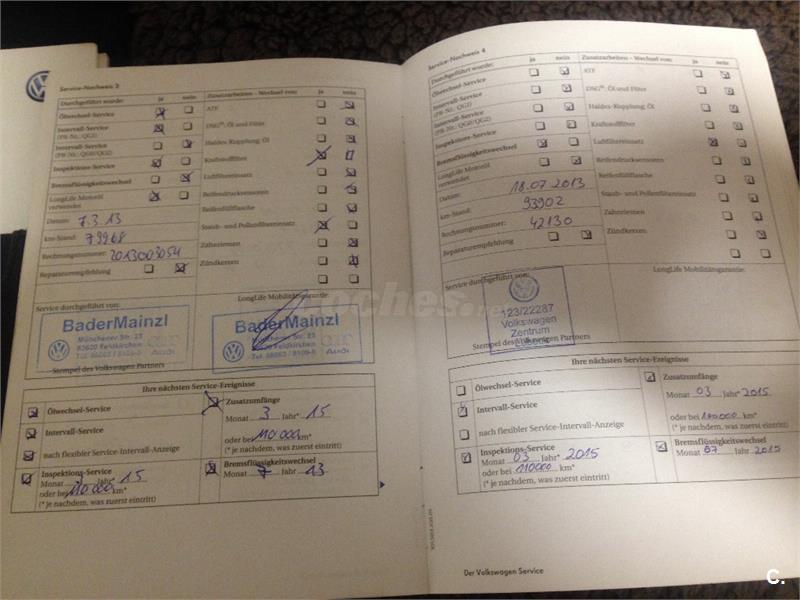 Service-Nachweis 3
Durchgeführt wurde: ja nein
Ölwechsel-Service
Intervall-Service
(PR-Nr.: QG1)
Intervall-Service
(PR-Nr.: QG0/QG2)
Inspektions-Service
Bremsflüssigkeitswechsel
LongLife Motoröl
verwendet
Datum: 7.3.13
km-Stand: 79968
Rechnungsnummer: 2013003054
Reparaturempfehlung
Zusatzarbeiten - Wechsel von: ja nein
ATF
DSG®: Öl und Filter
Haldex-Kupplung: Öl
Kraftstofffilter
Luftfiltereinsatz
Reifendrucksensoren
Reifenfüllflasche
Staub- und Pollenfiltereinsatz
Zahnriemen
Zündkerzen
Service durchgeführt von:
LongLife Mobilitätsgarantie:
BaderMainzl
Münchener Str. 23
83620 Feldkirchen
Audi
BaderMainzl
Münchener Str. 23
83620 Feldkirchen
Audi
Stempel des Volkswagen Partners
Ihre nächsten Service-Ereignisse
Ölwechsel-Service
Intervall-Service
nach flexibler Service-Intervall-Anzeige
Inspektions-Service
Monat Jahr* 15
oder bei 110 000 km*
(* je nachdem, was zuerst eintritt)
Zusatzumfänge
Monat 3 Jahr* 15
oder bei 110 000 km*
(* je nachdem, was zuerst eintritt)
Bremsflüssigkeitswechsel
Monat 7 Jahr 13
Service-Nachweis 4
Durchgeführt wurde: ja nein
Ölwechsel-Service
Intervall-Service
(PR-Nr.: QG1)
Intervall-Service
(PR-Nr.: QG0/QG2)
Inspektions-Service
Bremsflüssigkeitswechsel
LongLife Motoröl
verwendet
Datum: 18.07.2013
km-Stand: 93902
Rechnungsnummer: 42130
Reparaturempfehlung
Zusatzarbeiten - Wechsel von: ja nein
ATF
DSG®: Öl und Filter
Haldex-Kupplung: Öl
Kraftstofffilter
Luftfiltereinsatz
Reifendrucksensoren
Reifenfüllflasche
Staub- und Pollenfiltereinsatz
Zahnriemen
Zündkerzen
Service durchgeführt von:
LongLife Mobilitätsgarantie:
123/22287
Volkswagen
Zentrum
Stempel des Volkswagen Partners
Ihre nächsten Service-Ereignisse
Ölwechsel-Service
Intervall-Service
nach flexibler Service-Intervall-Anzeige
Inspektions-Service
Monat 03 Jahr* 2015
oder bei 110000 km*
(* je nachdem, was zuerst eintritt)
Zusatzumfänge
Monat 03 Jahr* 2015
oder bei 110000 km*
(* je nachdem, was zuerst eintritt)
Bremsflüssigkeitswechsel
Monat 07 Jahr 2015
Der Volkswagen Service
C.